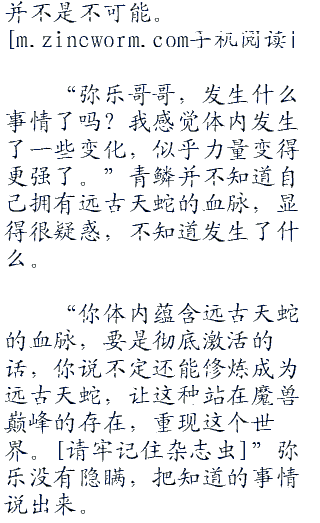 并不是不可能。
[m.zincworm.com手机阅读]
“弥乐哥哥，发生什么
事情了吗？我感觉体内发生
了一些变化，似乎力量变得
更强了。”青鳞并不知道自
己拥有远古天蛇的血脉，显
得很疑惑，不知道发生了什
么。
“你体内蕴含远古天蛇
的血脉，要是彻底激活的
话，你说不定还能修炼成为
远古天蛇，让这种站在魔兽
巅峰的存在，重现这个世
界。[请牢记住杂志虫]”弥
乐没有隐瞒，把知道的事情
说出来。